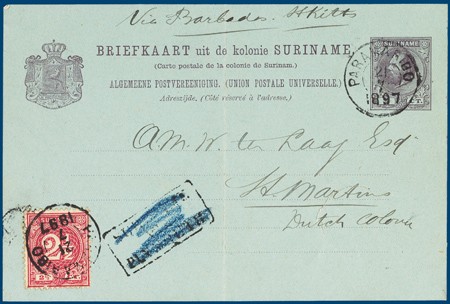 Via Barbados. St Kitts
BRIEFKAART uit de kolonie SURINAME.
(Carte postale de la colonie de Surinam.)
ALGEMEENE POSTVEREENIGING. (UNION POSTALE UNIVERSELLE.)
Adreszijde. (Côté réservé à l'adresse.)
SURINAME
PARA BO
1897
A.M.W. ter Laag Esq
St. Martins
Dutch Colonie
1897
BO
2½